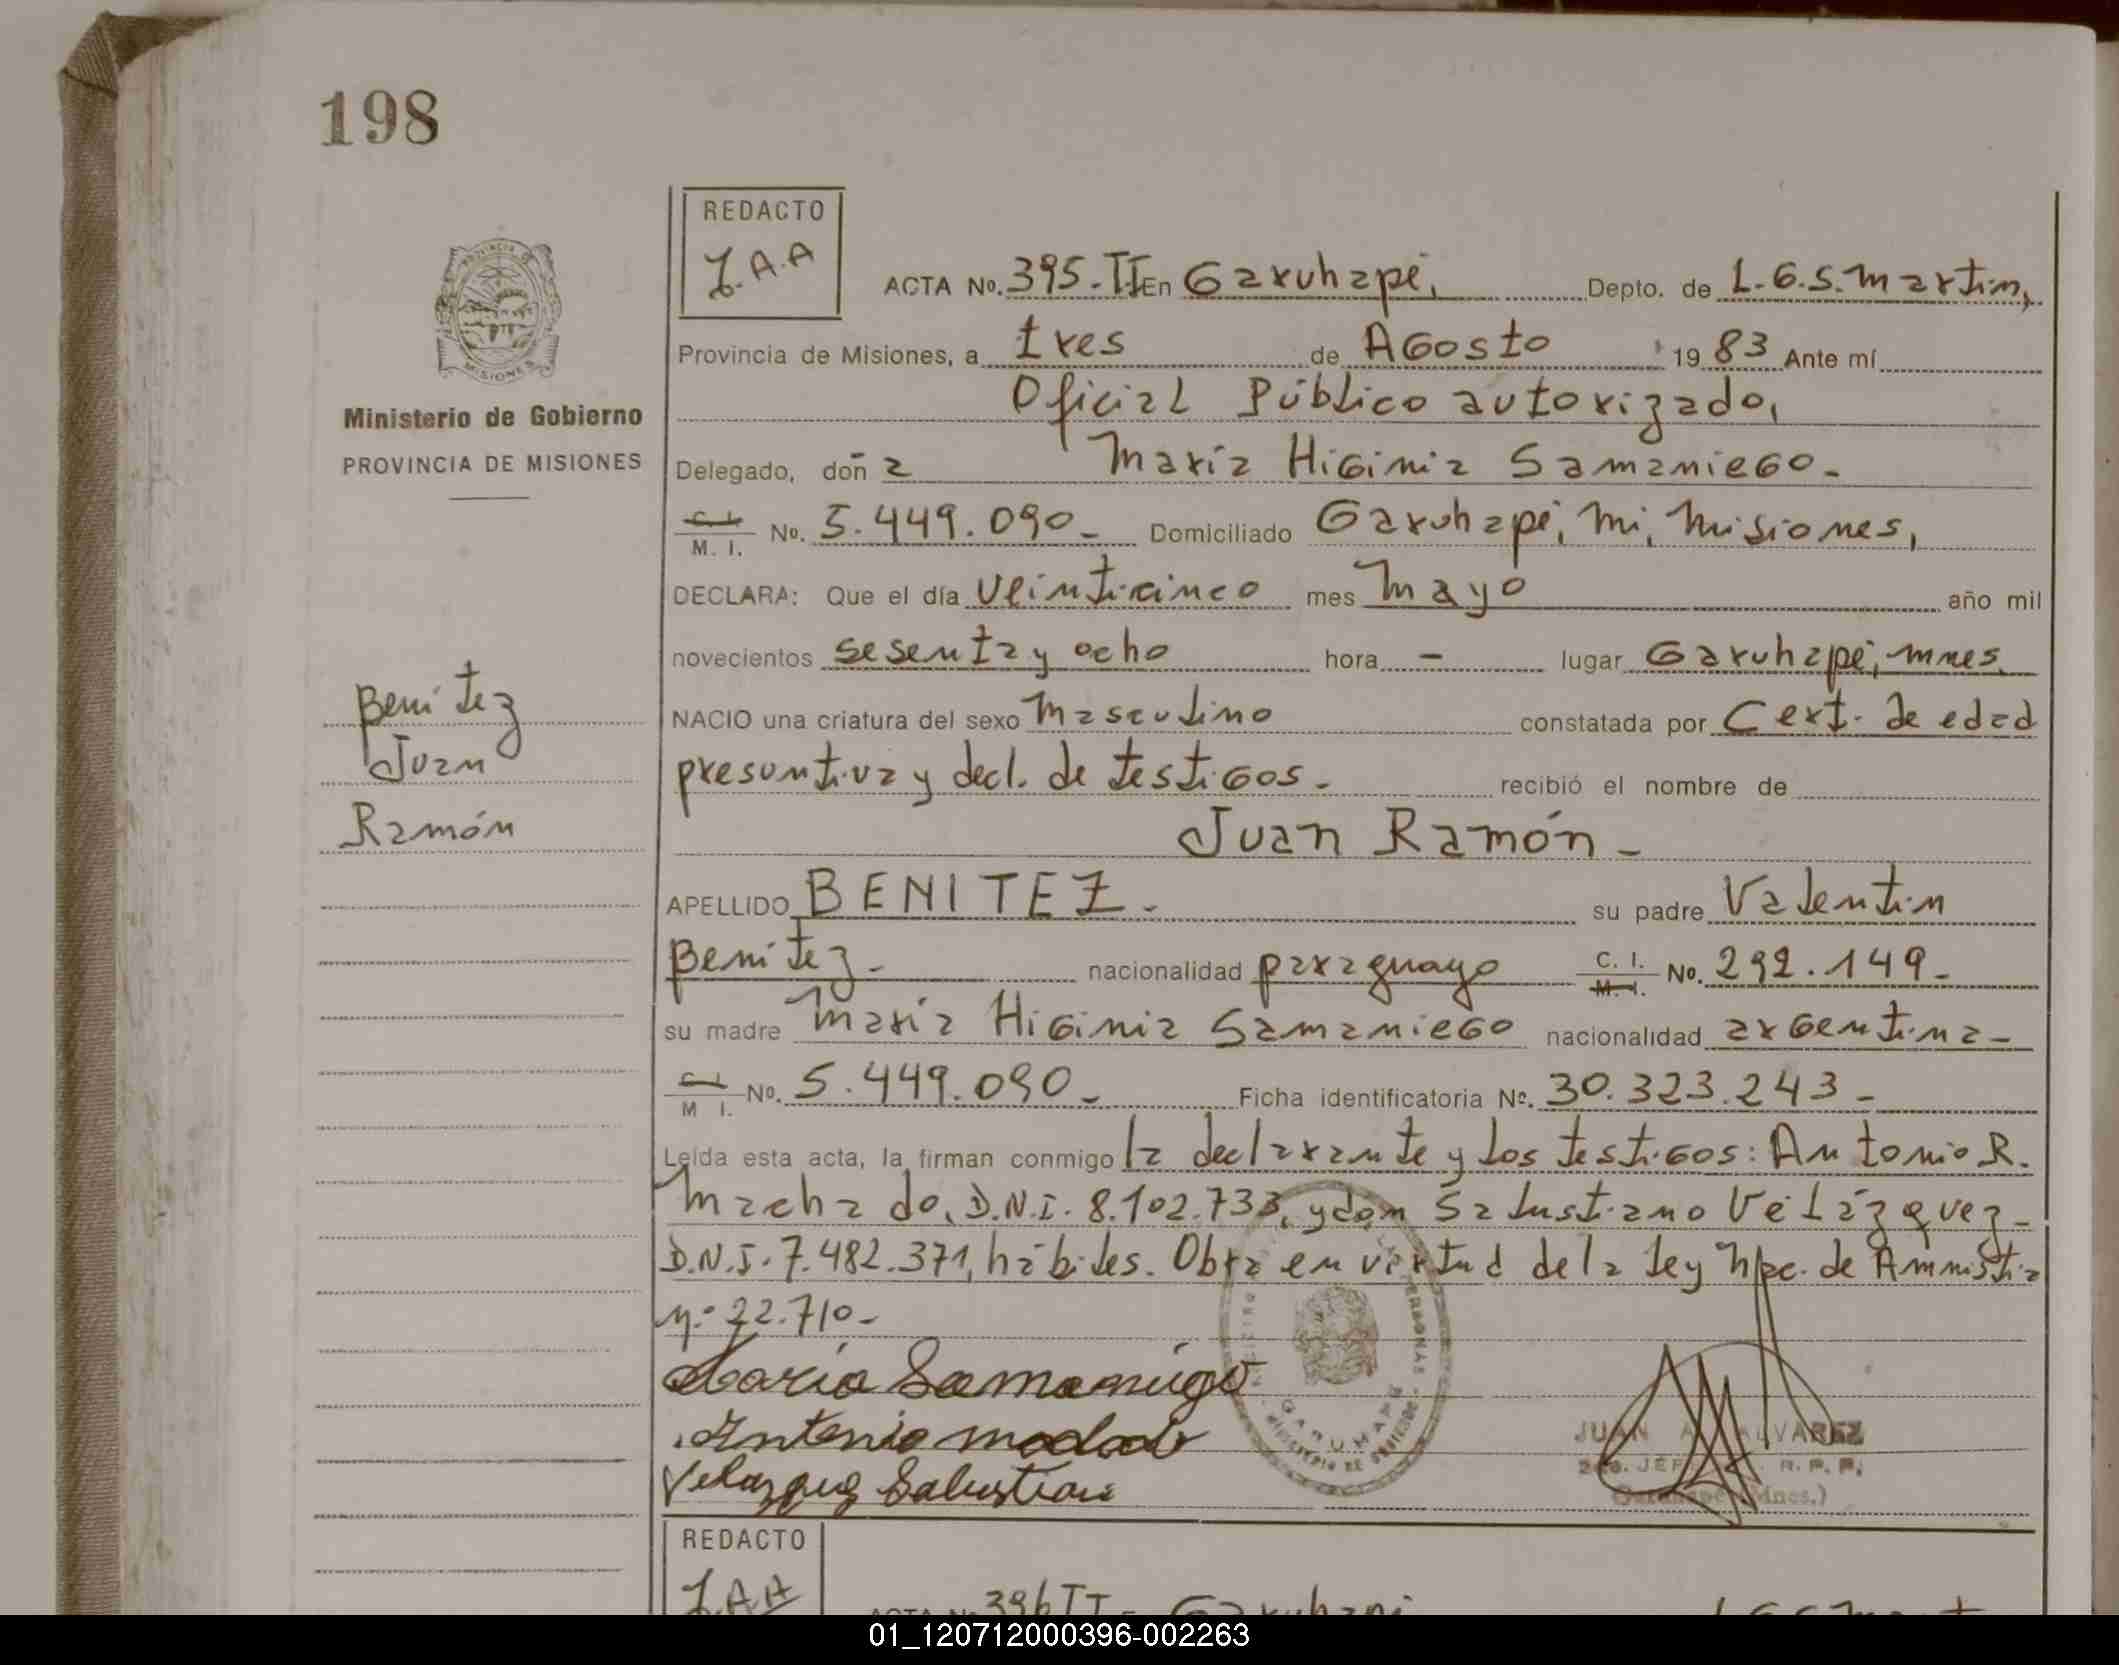 198
REDACTO
J.A.A
ACTA No. 395-II En Garuhapé, Depto. de L.G.S. Martin,
Provincia de Misiones, a tres de Agosto 1983 Ante mí
Oficial Público autorizado,
Ministerio de Gobierno
PROVINCIA DE MISIONES
Delegado, don a María Higinia Samaniego-
C. I. M. I. No. 5.449.090- Domiciliado Garuhapé, Mi, Misiones,
DECLARA: Que el día veinticinco mes Mayo año mil
novecientos sesenta y ocho hora - lugar Garuhapé, Mnes.
NACIO una criatura del sexo Masculino constatada por Cert. de edad
presuntiva y decl. de testigos- recibió el nombre de
Juan Ramón-
Benitez
Juan
Ramón
APELLIDO BENITEZ- su padre Valentin
Benitez- nacionalidad paraguayo C. I. M. I. No. 292.149-
su madre María Higinia Samaniego nacionalidad argentina-
C. I. M I. No. 5.449.090- Ficha identificatoria No. 30.323.243-
Leída esta acta, la firman conmigo la declarante y los testigos: Antonio R.
Machado, D.N.I. 8.102.733, y don Salustiano Velázquez-
D.N.I. 7.482.371, hábiles. Obra en virtud de la ley de Amnistia
n° 22.710-
María Samaniego
Antonio
Velazquez Salustian
GARUHAPE
JUAN A. ALVAREZ
JEF R. P. P.
(Garuhapé, Mnes.)
REDACTO
J.A.A
ACTA No. 396 II En Garuhapé
01_120712000396-002263